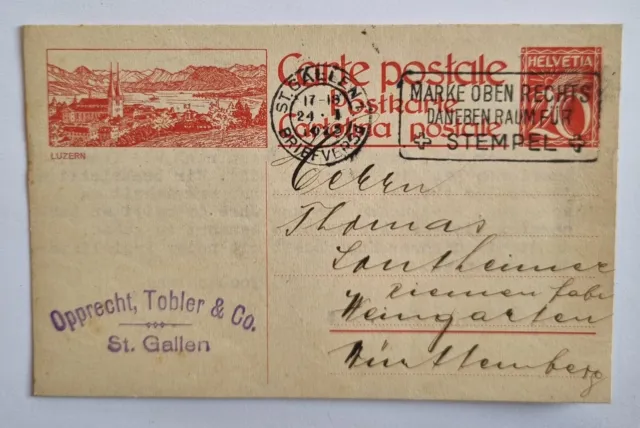 Carte postale
Postkarte
Cartolina postale
HELVETIA
20
ST. GALLEN 1
17-18
24
BRIEFVERS.
MARKE OBEN RECHTS
DANEBEN RAUM FÜR
STEMPEL
LUZERN
Herrn
Thomas
Sontheimer
Riemenfabr
Weingarten
Württemberg
Opprecht, Tobler & Co.
St. Gallen